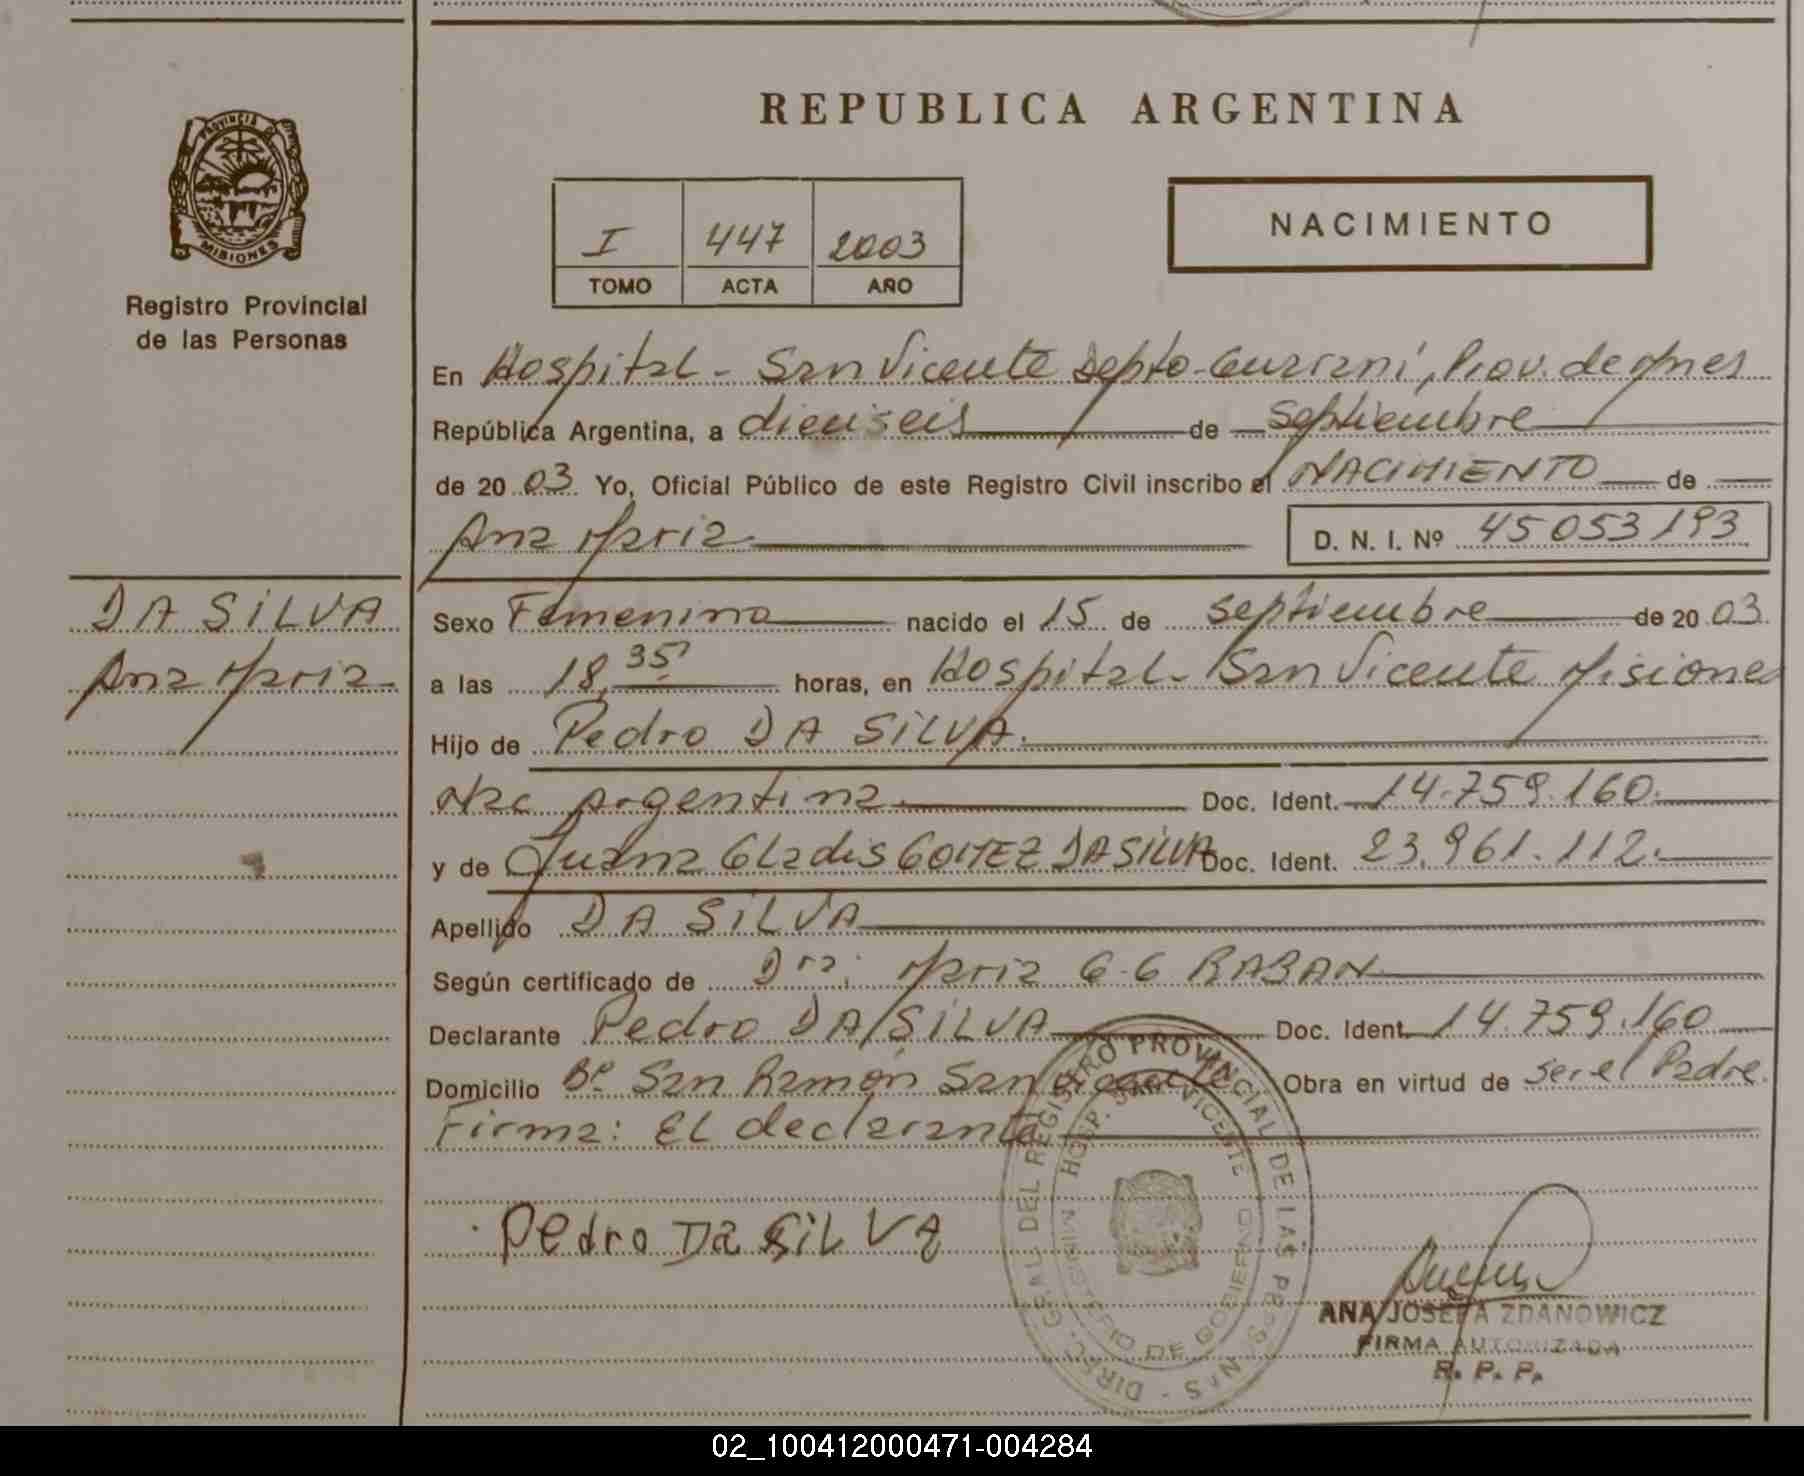 REPUBLICA ARGENTINA
PROVINCIA DE
MISIONES
Registro Provincial
de las Personas
I 447 2003
TOMO ACTA AÑO
NACIMIENTO
En Hospital - San Vicente Depto - Guaraní, Prov. de Mnes
República Argentina, a dieciseis de Septiembre
de 20 03 Yo, Oficial Público de este Registro Civil inscribo el NACIMIENTO de
Ana Maria D. N. I. Nº 45053193
DA SILVA
Ana Maria
Sexo Femenino nacido el 15 de Septiembre de 20 03
a las 18,35' horas, en Hospital - San Vicente Misiones
Hijo de Pedro DA SILVA.
Nac Argentina Doc. Ident. 14.759.160.
y de Juana Gladis GOMEZ DA SILVA Doc. Ident. 23.961.112.
Apellido DA SILVA
Según certificado de Dra: Maria G. G RABAN
Declarante Pedro DA SILVA Doc. Ident. 14.759.160
Domicilio Bº San Ramón San Vicente Obra en virtud de ser el Padre.
Firma: El declarante
Pedro Da SiLVa
DIREC. GRAL. DEL REGISTRO PROVINCIAL DE LAS PERSONAS
HOSP. SAN VICENTE
MINISTERIO DE GOBIERNO
ANA JOSEFA ZDANOWICZ
FIRMA AUTORIZADA
R. P. P.
02_100412000471-004284